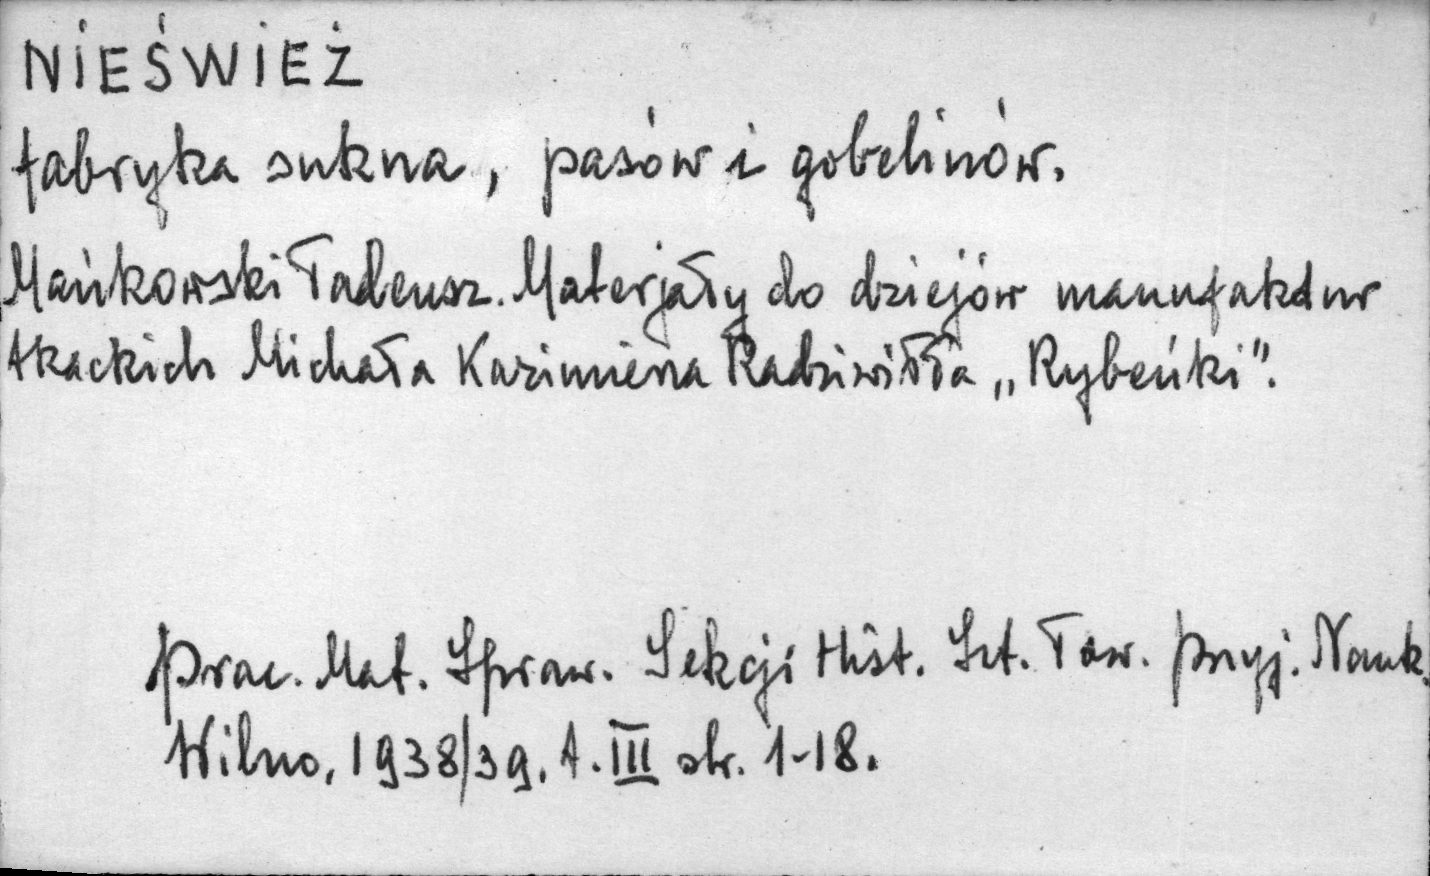 NIEŚWIEŻ
fabryka sukna, pasów i gobelinów.
Mańkowski Tadeusz. Materjały do dziejów manufaktur
tkackich Michała Kazimierza Radziwiłła „Rybeńki".
Prac. Mat. Spraw. Sekcji Hist. Szt. Tow. Przyj. Nauk.
Wilno, 1938/39. t. III str. 1-18.